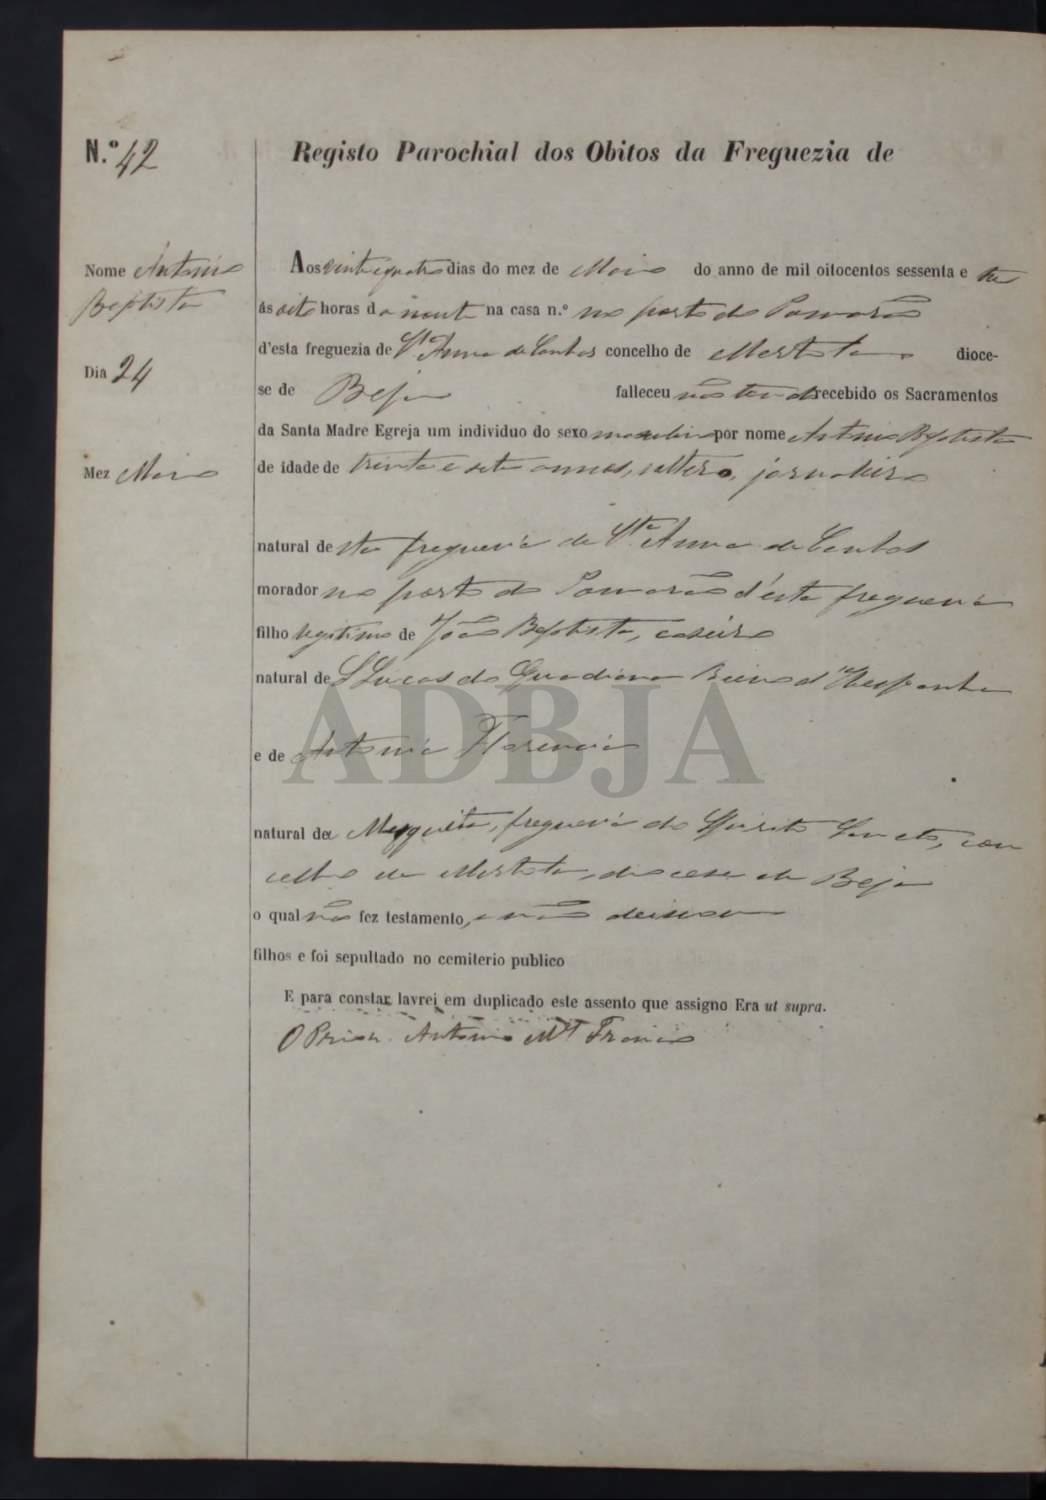 N.º 42
Registo Parochial dos Obitos da Freguezia de
Nome Antonio
Baptista
Dia 24
Mez Maio
Aos vinte e quatro dias do mez de Maio do anno de mil oitocentos sessenta e tres
ás oito horas da noute na casa n.º no porto do Pomarão
d'esta freguezia de Sta Anna de Cambas concelho de Mertola dioce-
se de Beja falleceu não tendo recebido os Sacramentos
da Santa Madre Egreja um individuo do sexo masculino por nome Antonio Baptista
de idade de trinta e sete annos, solteiro, jornaleiro
natural desta freguezia de Sta Anna de Cambas
morador no porto do Pomarão d'esta freguezia
filho legitimo de João Baptista, caseiro
natural de S Lucas do Guadiana Reino d'Hespanha
e de Antonia Florencia
natural de Mesquita, freguezia do Spirito Sancto, con
celho de Mertola, diocese de Beja
o qual não fez testamento, e não deixou
filhos e foi sepultado no cemiterio publico
E para constar lavrei em duplicado este assento que assigno Era ut supra.
O Prior Antonio Mel
ADBJA